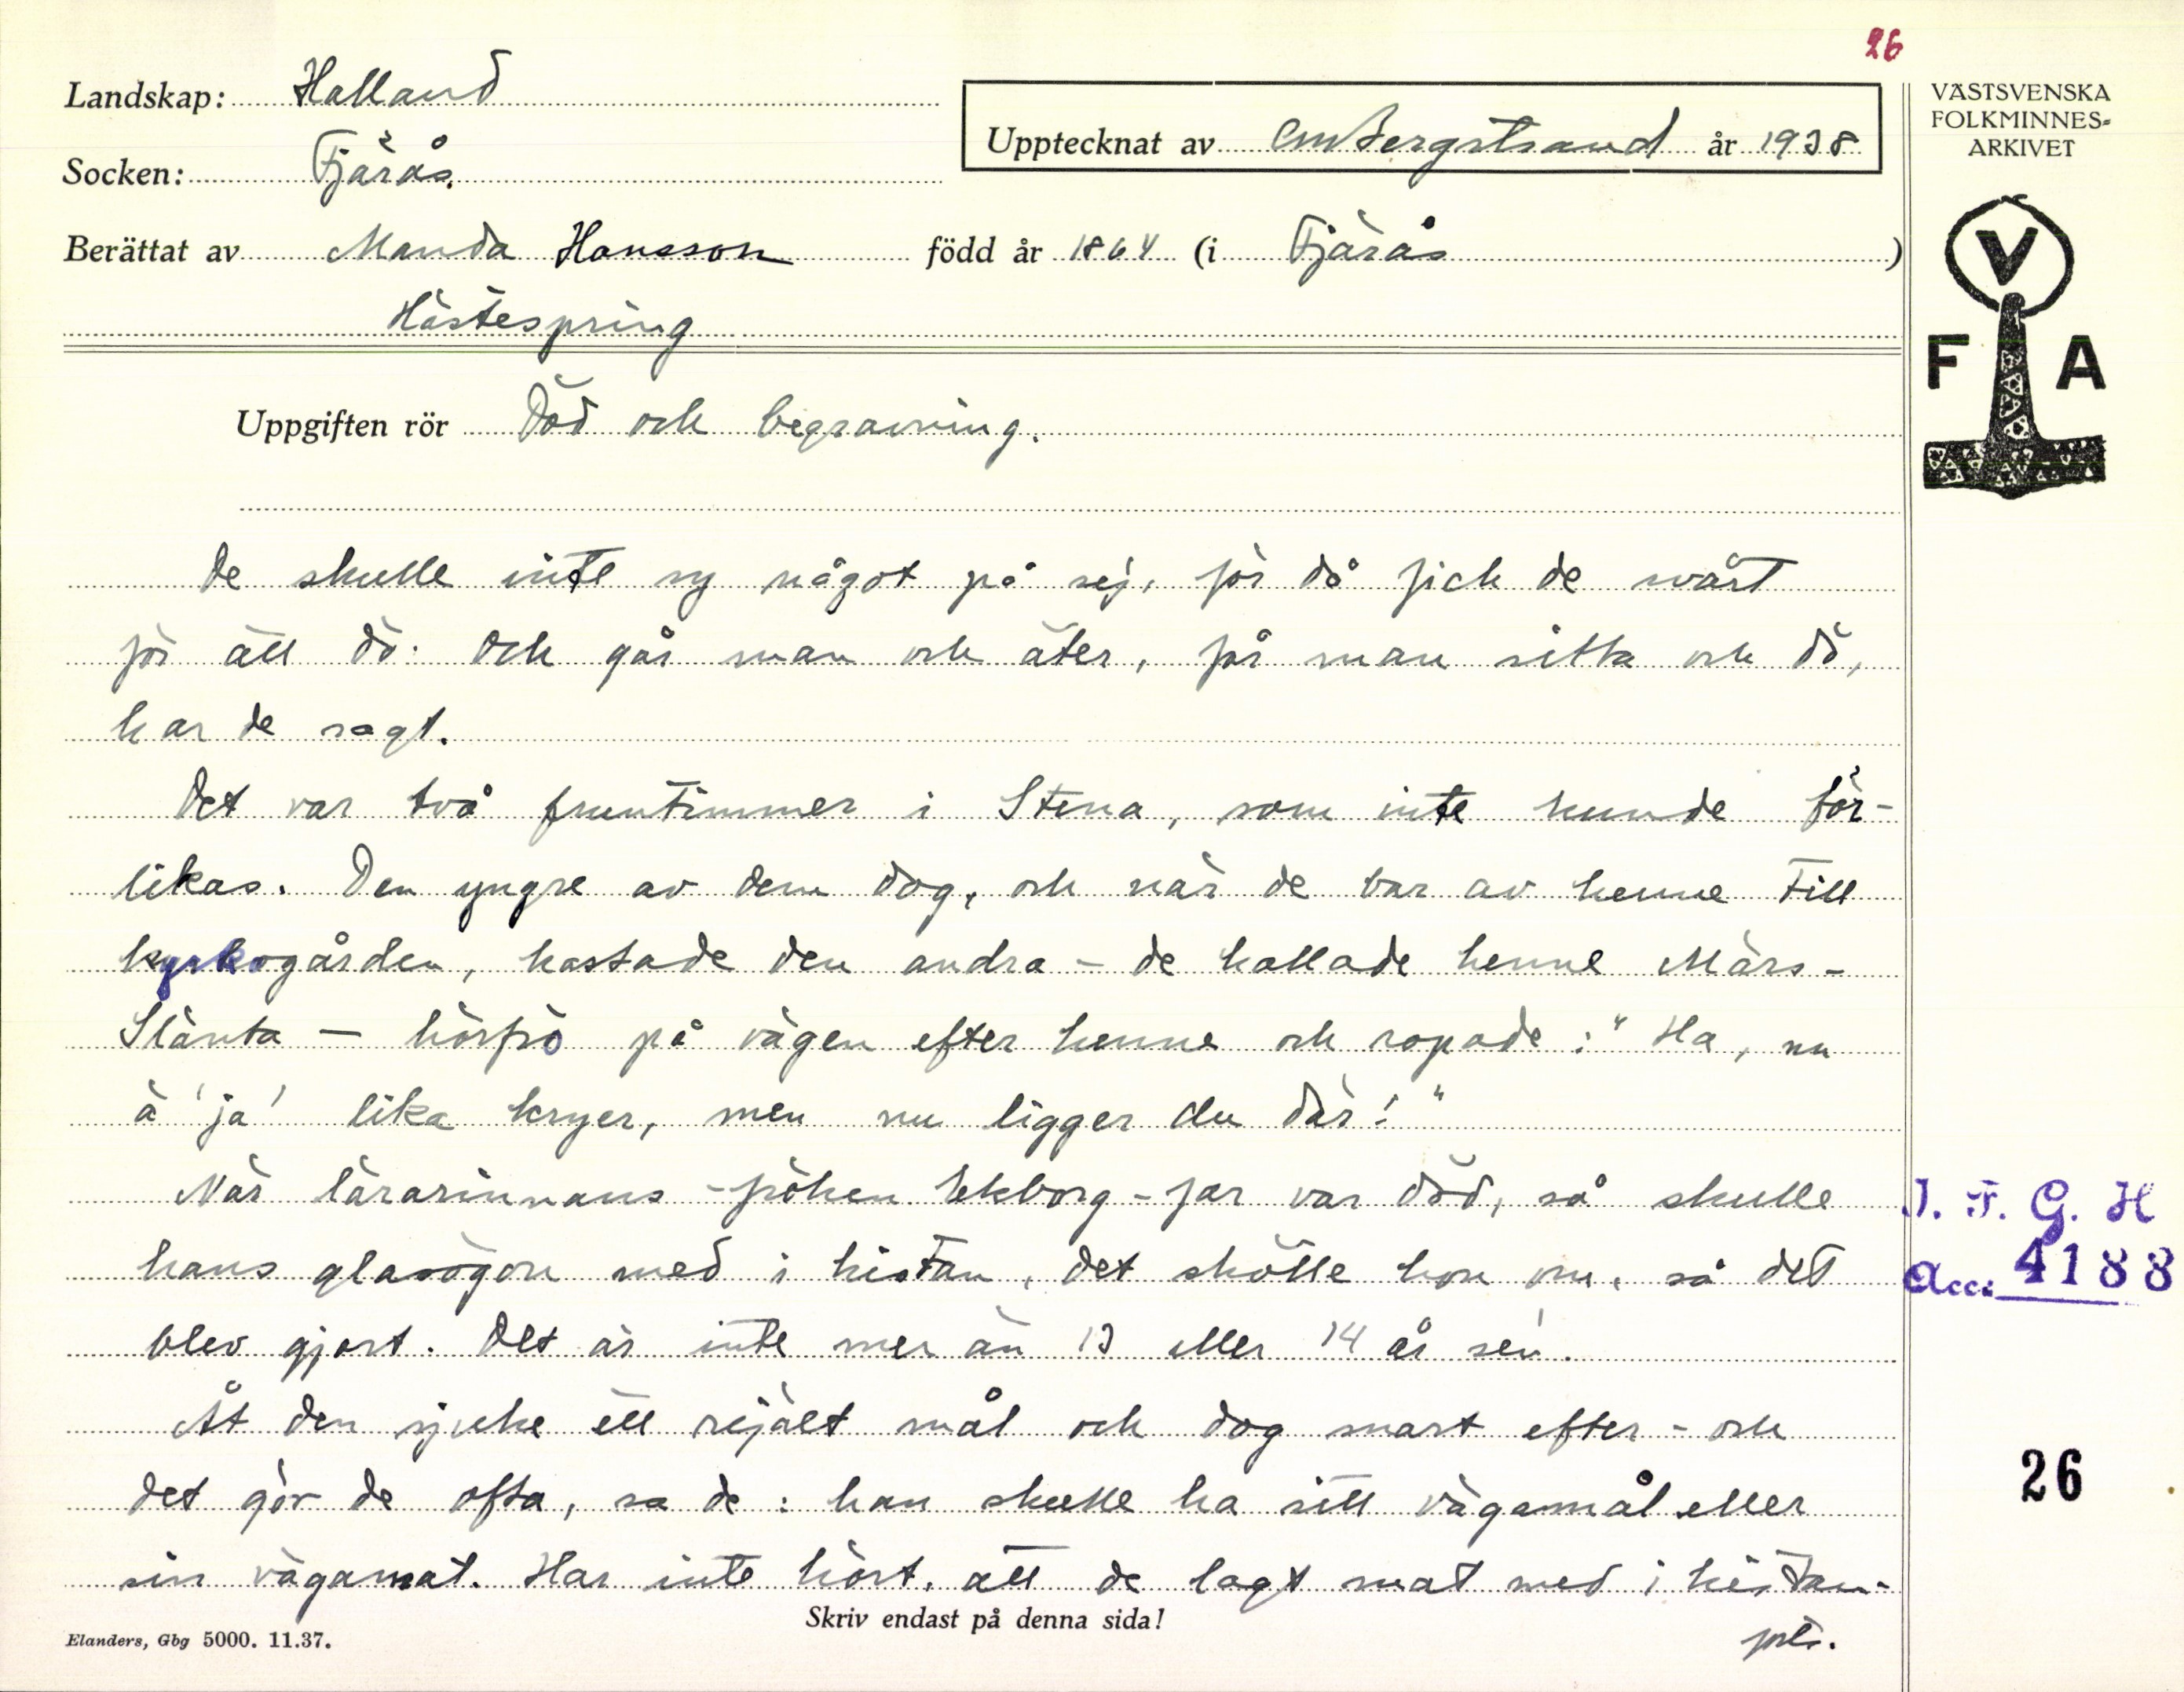 26
Landskap: Halland
Upptecknat av CMBergstrand år 1938
VÄSTSVENSKA
FOLKMINNES-
ARKIVET
Socken: Fjärås.
Berättat av Manda Hansson född år 1864 (i Fjärås )
Hästespring
V
F A
Uppgiften rör Död och begravning.
De skulle inte sy något på sej, för då fick de svårt
för att dö. Och går man och äter, får man sitta och dö,
har de sagt.
Det var två fruntimmer i Stena, som inte kunde för-
likas. Den yngre av dem dog, och när de bar av henne till
kyrkogården, kastade den andra - de kallade henne Märs-
Slänta — hörfrö på vägen efter henne och ropade: "Ha, nu
ä' ja' lika kryer, men nu ligger du där!"
När lärarinnans - fröken Ekborg - far var död, så skulle
hans glasögon med i kistan, det skötte hon om, så det
blev gjort. Det är inte mer än 13 eller 14 år sen.
Åt den sjuke ett rejält mål och dog snart efter - och
det gör de ofta, sa de: han skulle ha sitt vägamål eller
sin vägamat. Har inte hört, att de lagt mat med i kistan.
Skriv endast på denna sida!
forts.
Elanders, Gbg 5000. 11.37.
I. F. G. H
Acc: 4188
26